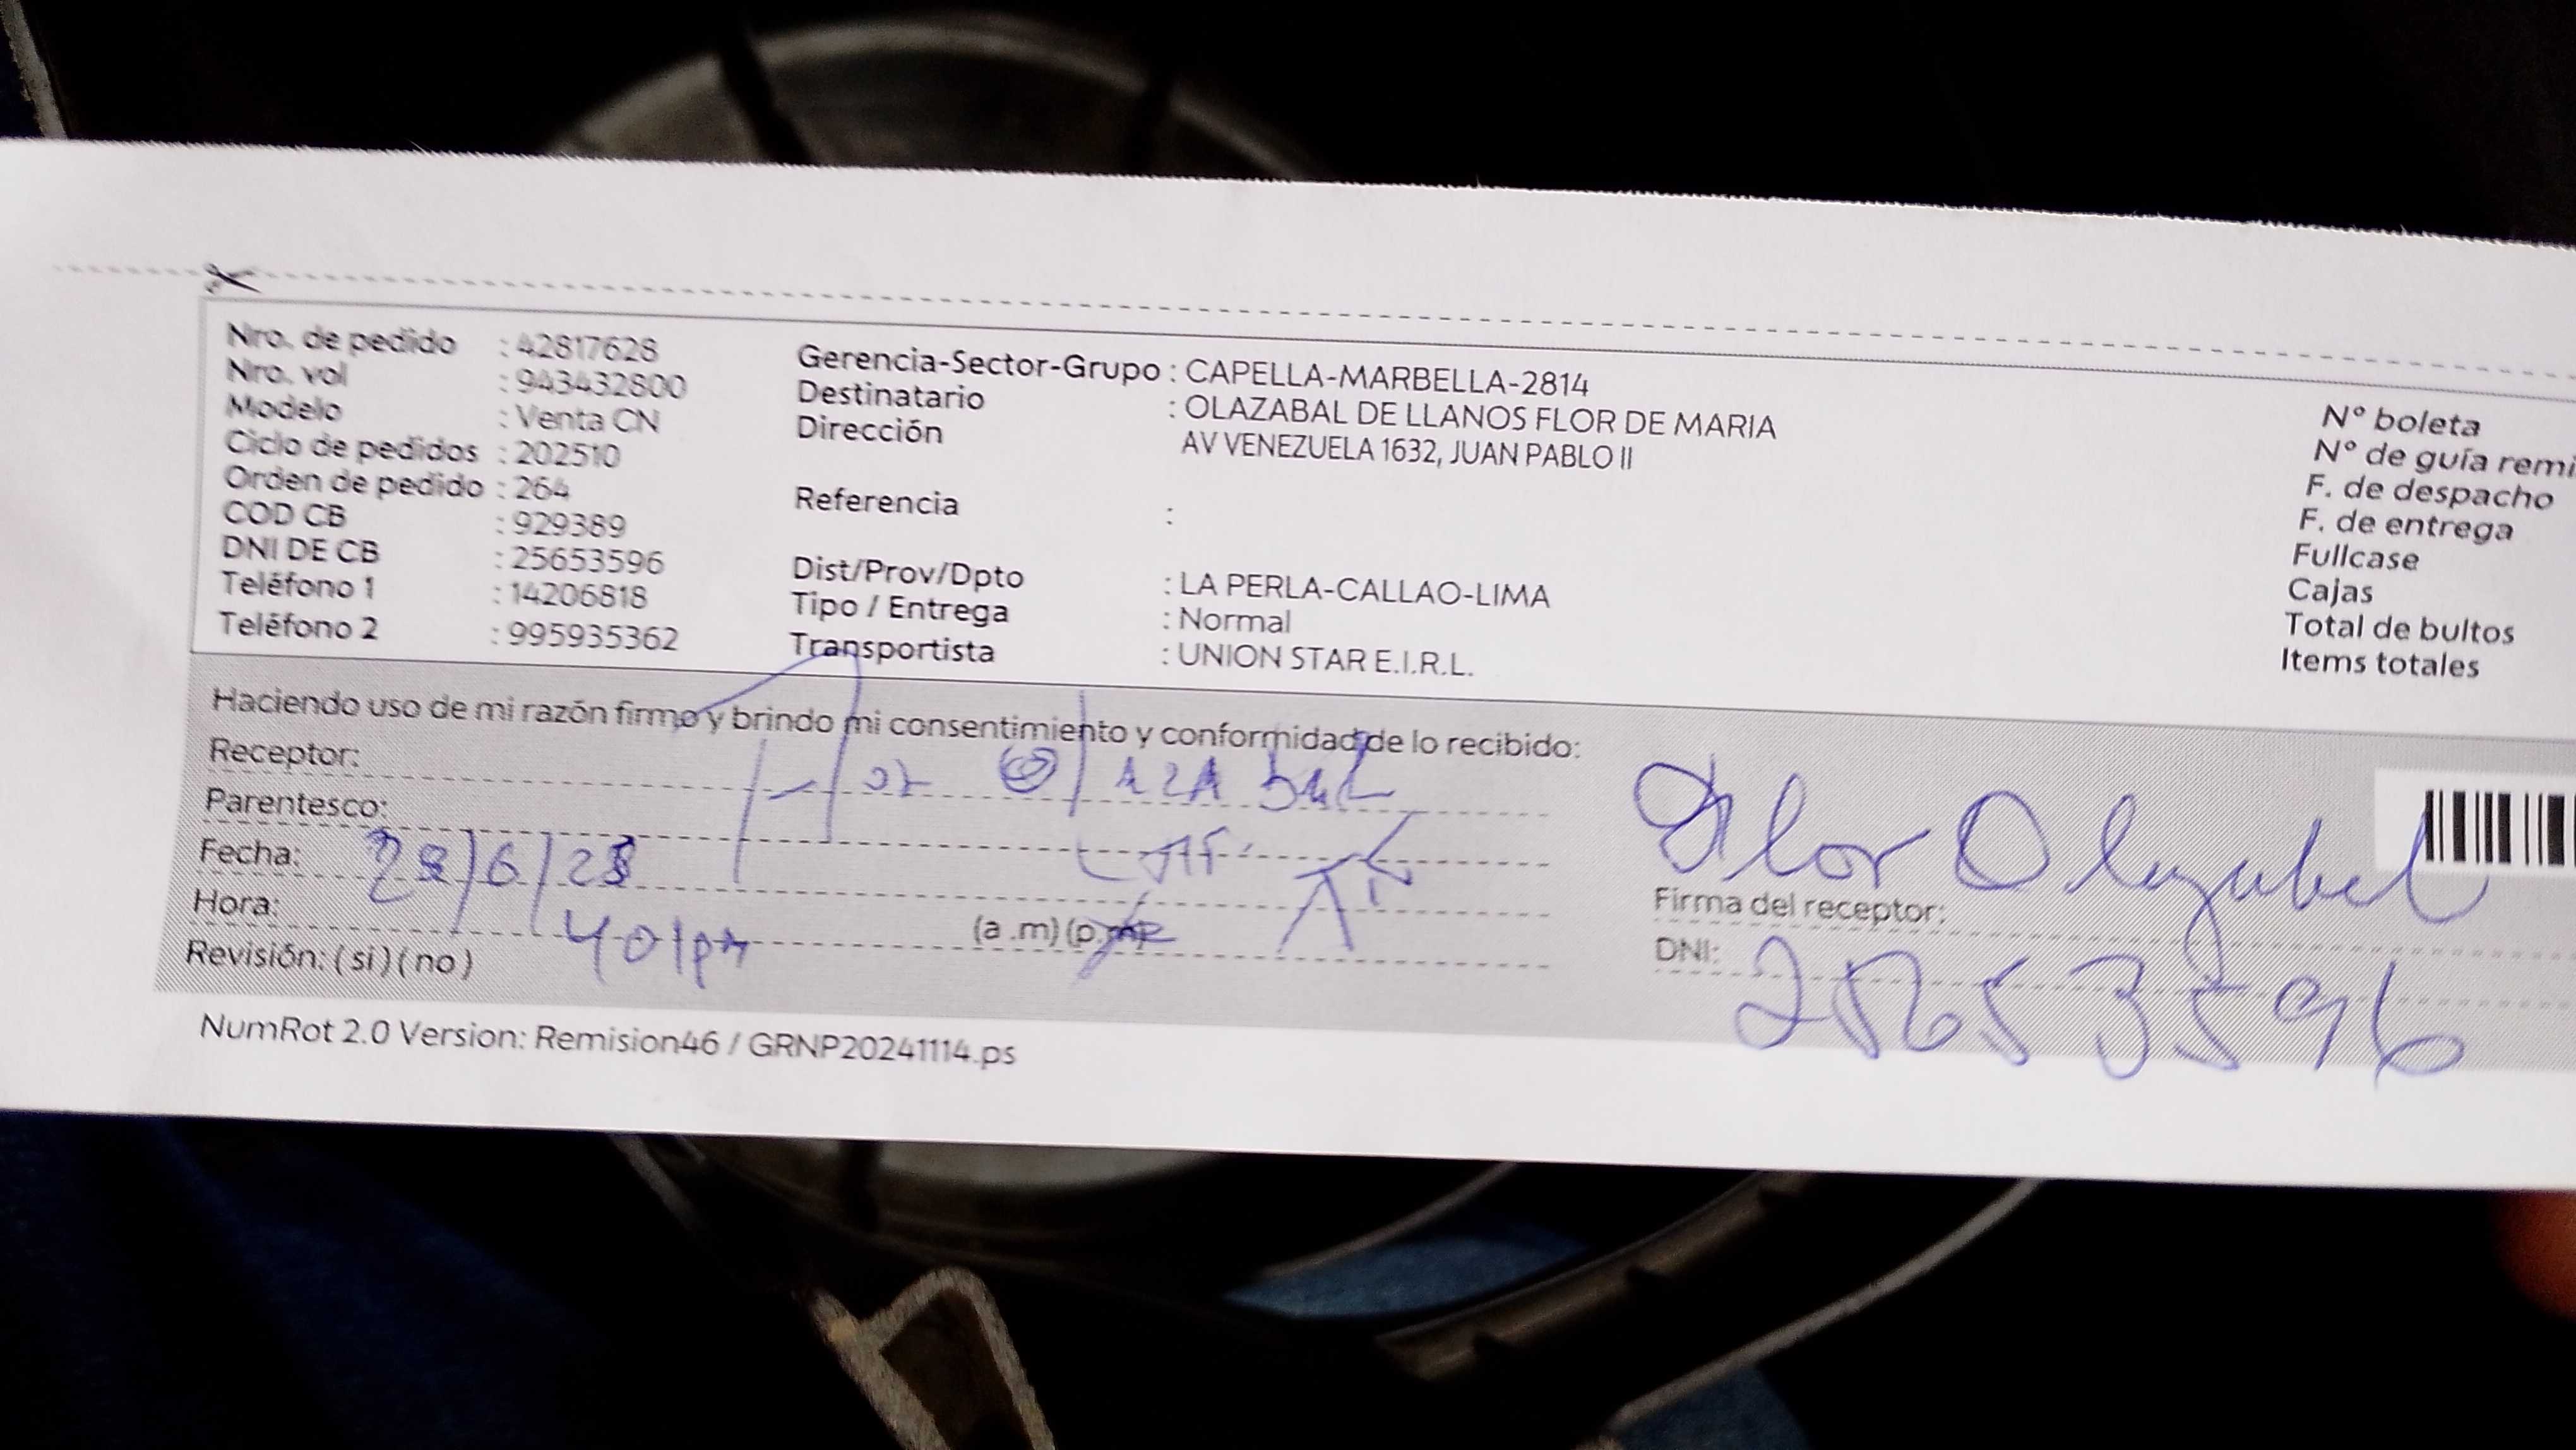 Nro. de pedido : 42817628
Nro. vol : 943432800
Modelo : Venta CN
Ciclo de pedidos : 202510
Orden de pedido : 264
COD CB : 929389
DNI DE CB : 25653596
Teléfono 1 : 14206818
Teléfono 2 : 995935362
Gerencia-Sector-Grupo : CAPELLA-MARBELLA-2814
Destinatario : OLAZABAL DE LLANOS FLOR DE MARIA
Dirección AV VENEZUELA 1632, JUAN PABLO II
Referencia :
Dist/Prov/Dpto : LA PERLA-CALLAO-LIMA
Tipo / Entrega : Normal
Transportista : UNION STAR E.I.R.L.
N° boleta
N° de guía remi
F. de despacho
F. de entrega
Fullcase
Cajas
Total de bultos
Items totales
Haciendo uso de mi razón firmo y brindo mi consentimiento y conformidad de lo recibido:
Receptor: Flor Olazabal
Parentesco:
Fecha:
Hora: 401pm (a .m) (p.m)
Revisión: ( si ) ( no )
Flor Olazabal
Firma del receptor:
DNI: 25653596
NumRot 2.0 Version: Remision46 / GRNP20241114.ps